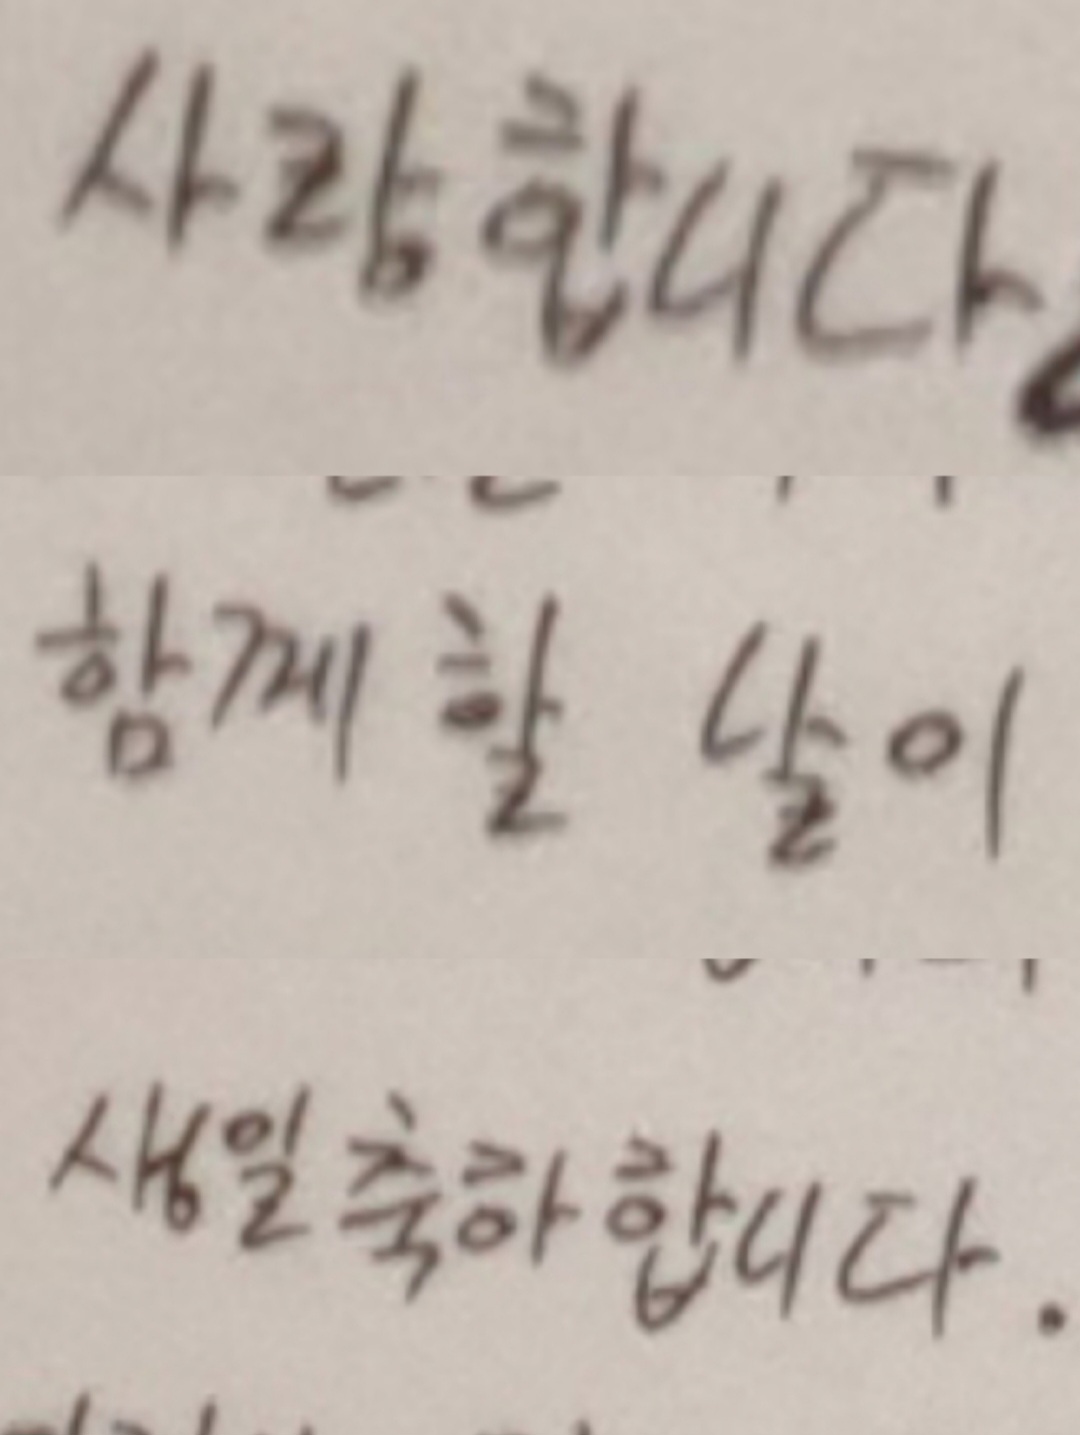 사랑합니다
함께 할 날이
생일 축하합니다.